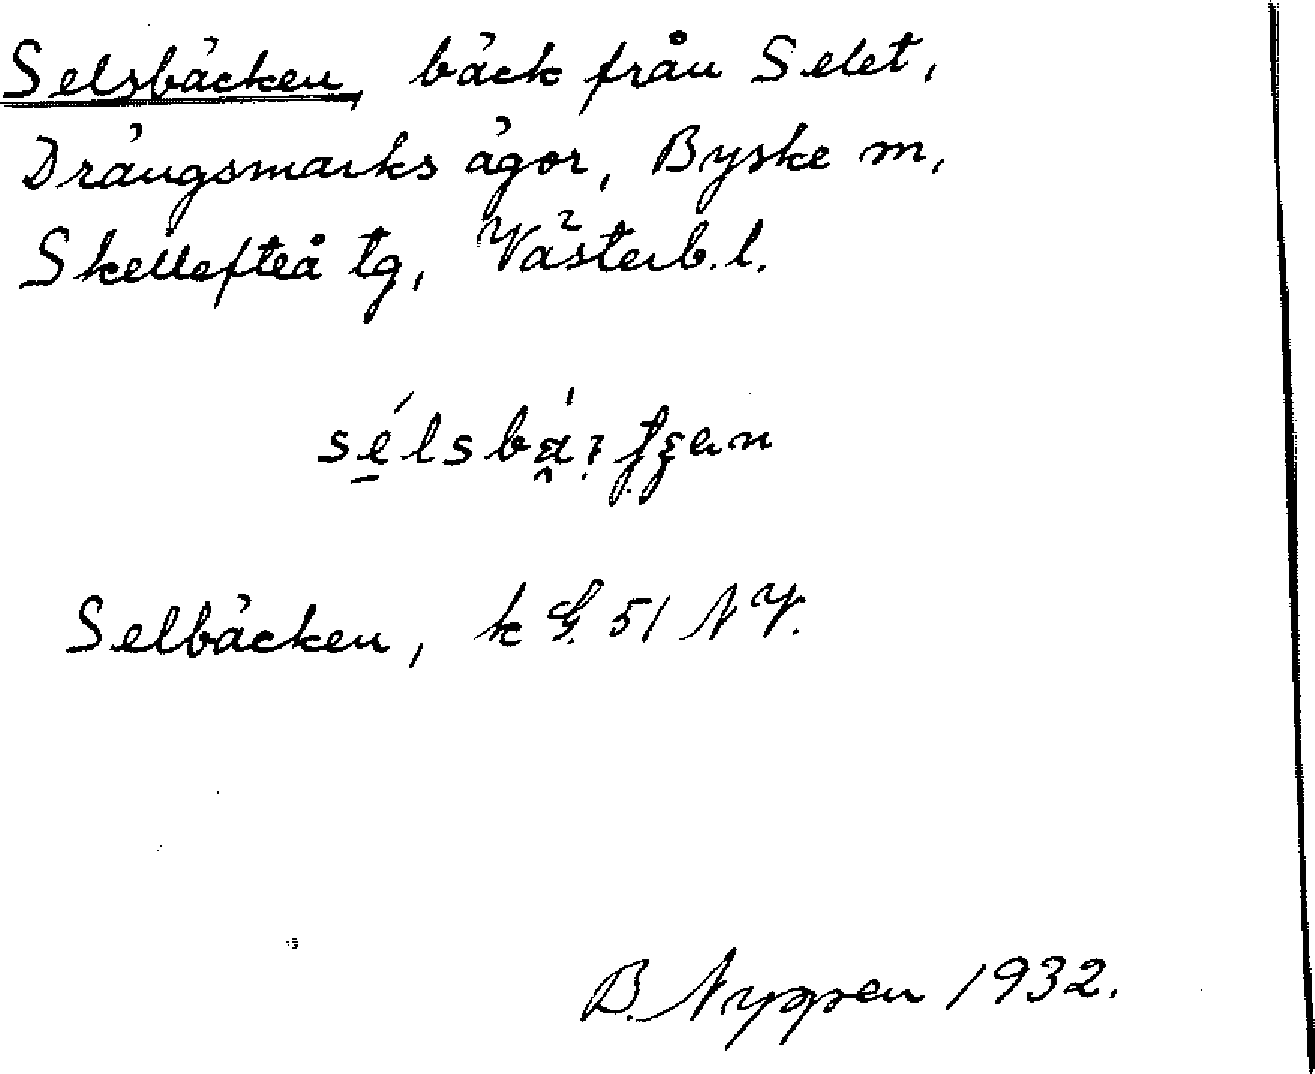 Selsbäcken, bäck från Selet,
Drängsmarks ägor, Byske m,
Skellefteå tg, Västerb. l.
Selbäcken, k G. 51 NV.
B. Nygren 1932.